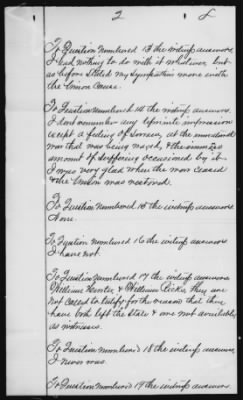 2
To Question Numbered 13 the witness answers
I had nothing to do with it whatever but
as before stated my Sympathies were with
the Union Cause.
To Question Numbered 14 the witness answers
I dont remember any definite impression
except a feeling of sorrow, at the
war that was being waged, & the
amount of suffering occasioned by it.
I was very glad when the war ceased
& the Union was restored.
To Question Numbered 15 the witness answers
None.
To Question Numbered 16 the witness answers
I have not.
To Question Numbered 17 the witness answers
William & William they are
not called to testify for the reason that they
have both left the State & are not available
as witnesses.
To Question Numbered 18 the witness answers
I never was.
To Question Numbered 19 the witness answers